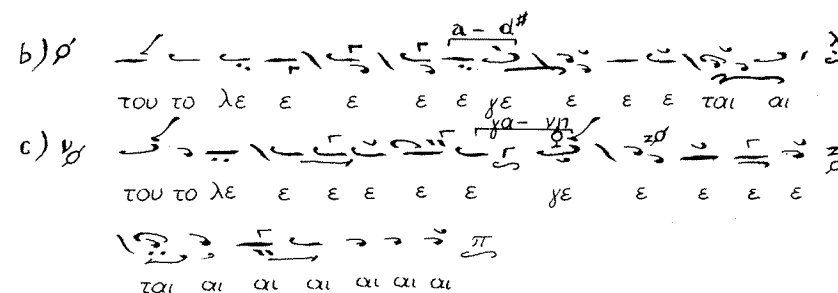 a - d#
b)
του το λε ε ε ε ε γε ε ε ε ται αι
γα - νη
c)
του το λε ε ε ε ε ε γε ε ε ε ε
π
ται αι αι αι αι αι αι